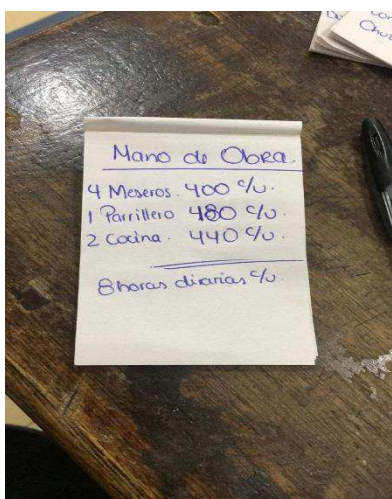 Mano de Obra.
4 Meseros. 400 c/u.
1 Parrillero 480 c/u.
2 Cocina. 440 c/u.
8 horas dirarias c/u.